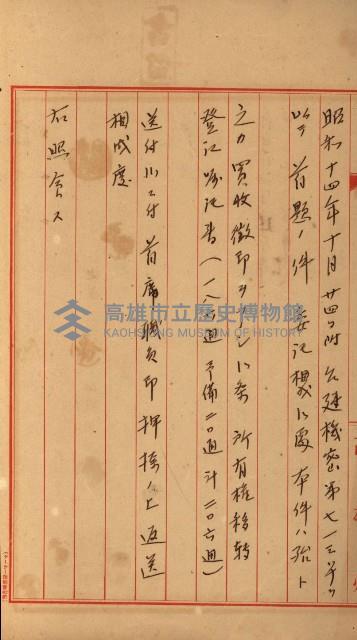 昭和十四年十月廿四日附台建機密第七一三号ヲ
以テ首題ノ件委記相成候処本件ハ殆ト
之カ買收徵印ヲ了シ候条所有權移轉
登記嘱託書（一八六通予備二〇通計二〇六通）
送付候ニ付首席職員印押捺ノ上返送
相成度
右照会ス
高雄市立歷史博物館
KAOHSIUNG MUSEUM OF HISTORY